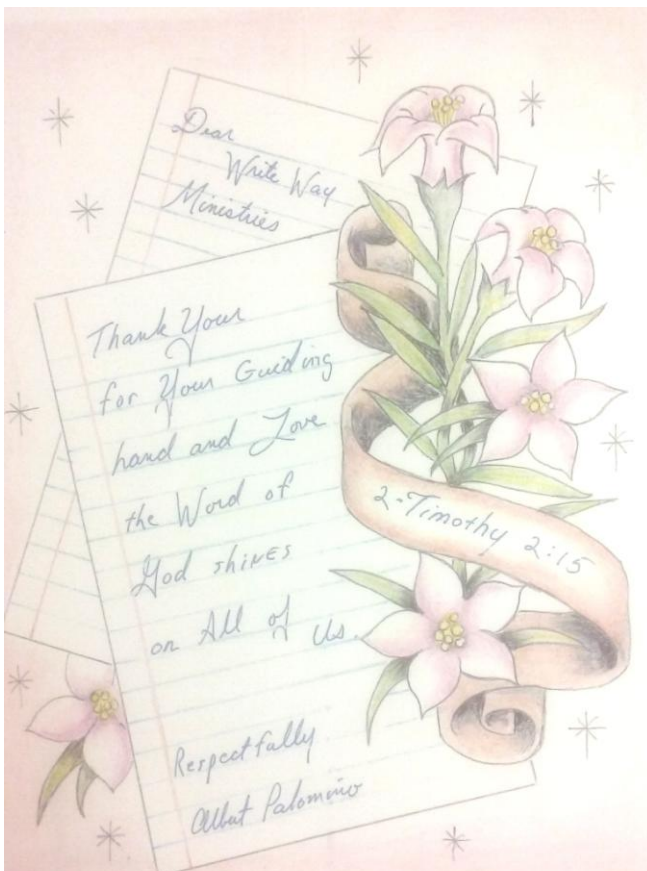 Dear
Write Way
Ministries
Thank Your
for Your Guiding
hand and Love
the Word of
God shines
on All of Us.
Respectfully
Albert Palomino
2-Timothy 2:15